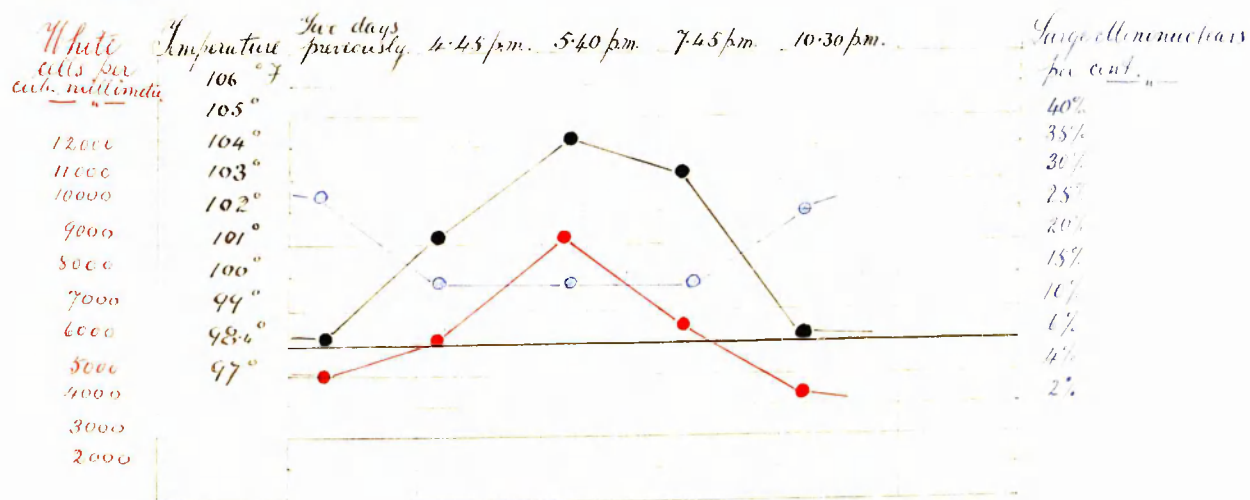 White
cells per
cub. millimetre
"
12000
11000
10000
9000
8000
7000
6000
5000
4000
3000
2000
Temperature
106 °F
105°
104°
103°
102°
101°
100°
99°
98.4°
97°
Two days
previously. 4.45 p.m. 5.40 p.m. 7.45 p.m. 10.30 p.m.
Large Mononuclears
per cent. "
40%
35%
30%
25%
20%
15%
10%
6%
4%
2%